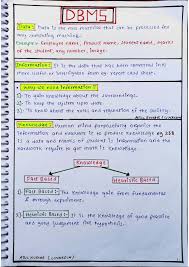 DBMS
Data: Data is the raw material that can be processed for
any computing machine.
Example - Employee name, Product name, Student name, marks
of the student, any number, image.
Information: It is the data that has been converted into
more useful or intelligent form eg. report card sheet.
Why we need Information?
1) To gain knowledge about the surroundings.
2) To keep the system upto date.
3) To know about the rules and regulation of the society.
Knowledge: Human mind purposefully organize the
information and evaluate it to produce knowledge eg 258
is a data and marks of student is Information and the
hardwork require to get mark is knowledge.
Knowledge
Fact Based
Heuristic Based
1) Fact Based:- The knowledge gain from fundamentals
& through experiment.
2) Heuristic Based:- It is the knowledge of good practice
and good judgement like hypothesis.